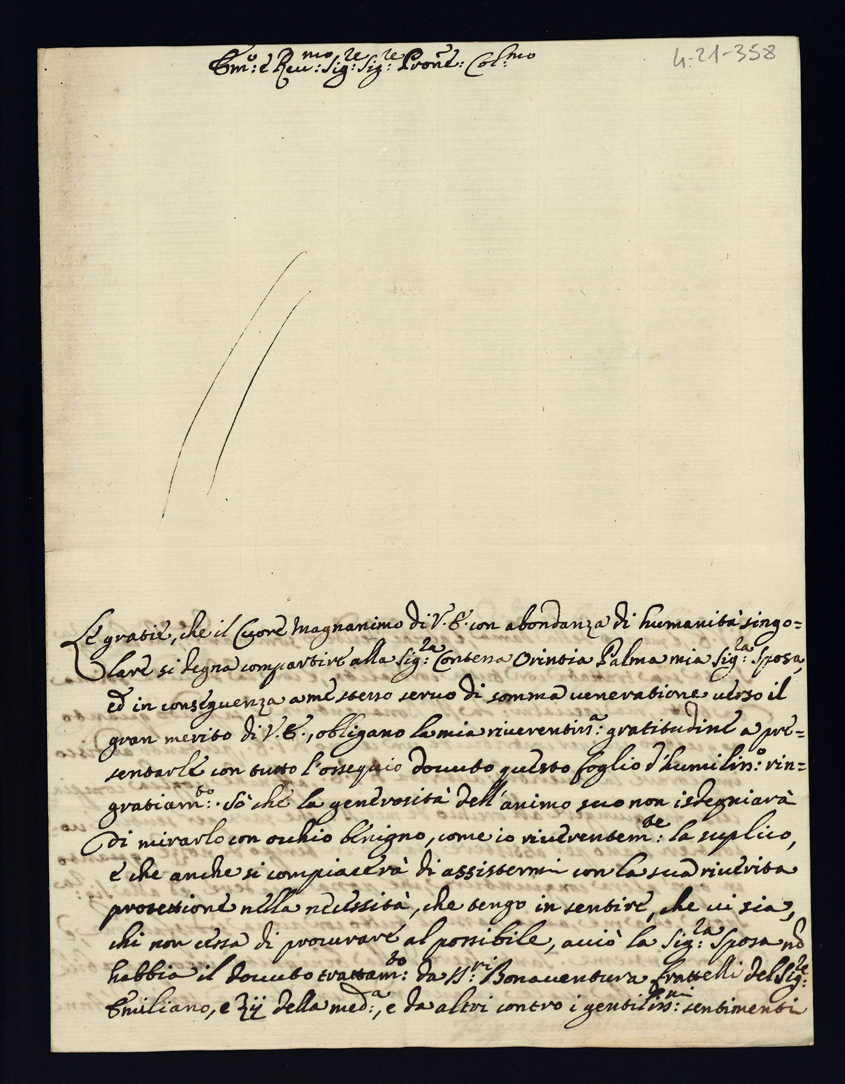 Em:º e Reu:mo Sig:re Sig:re Prone: Col:mo
4-21-358
Le gratie, che il Cuore Magnanimo di V. E. con abondanza di humanità singo=
lare si degna compartire alla Sig:ra Contessa Orintia Palma mia Sig:ra Sposa,
ed in conseguenza a me stesso seruo di somma ueneratione uerso il
gran merito di V. E., obligano la mia riuerentiss:a gratitudine a pre=
sentarle con tutto l'ossequio douuto questo foglio d'humiliss:o rin=
gratiam:to. Sò che la generosità dell'animo suo non isdegniarà
di mirarlo con occhio benigno, come io riuerentem:te la suplico,
e che anche si compiacerà di assistermi con la sua riuerita
protettione nella necessità, che tengo in sentire, che ui sia,
chi non cessa di procurare al possibile, acciò la Sig:ra Sposa nõ
habbia il douuto trattam:to da SS:ri Bonauentura fratelli del Sig:re
Emiliano, e Zij della med:a, e da altri contro i gentiliss:mi sentimenti